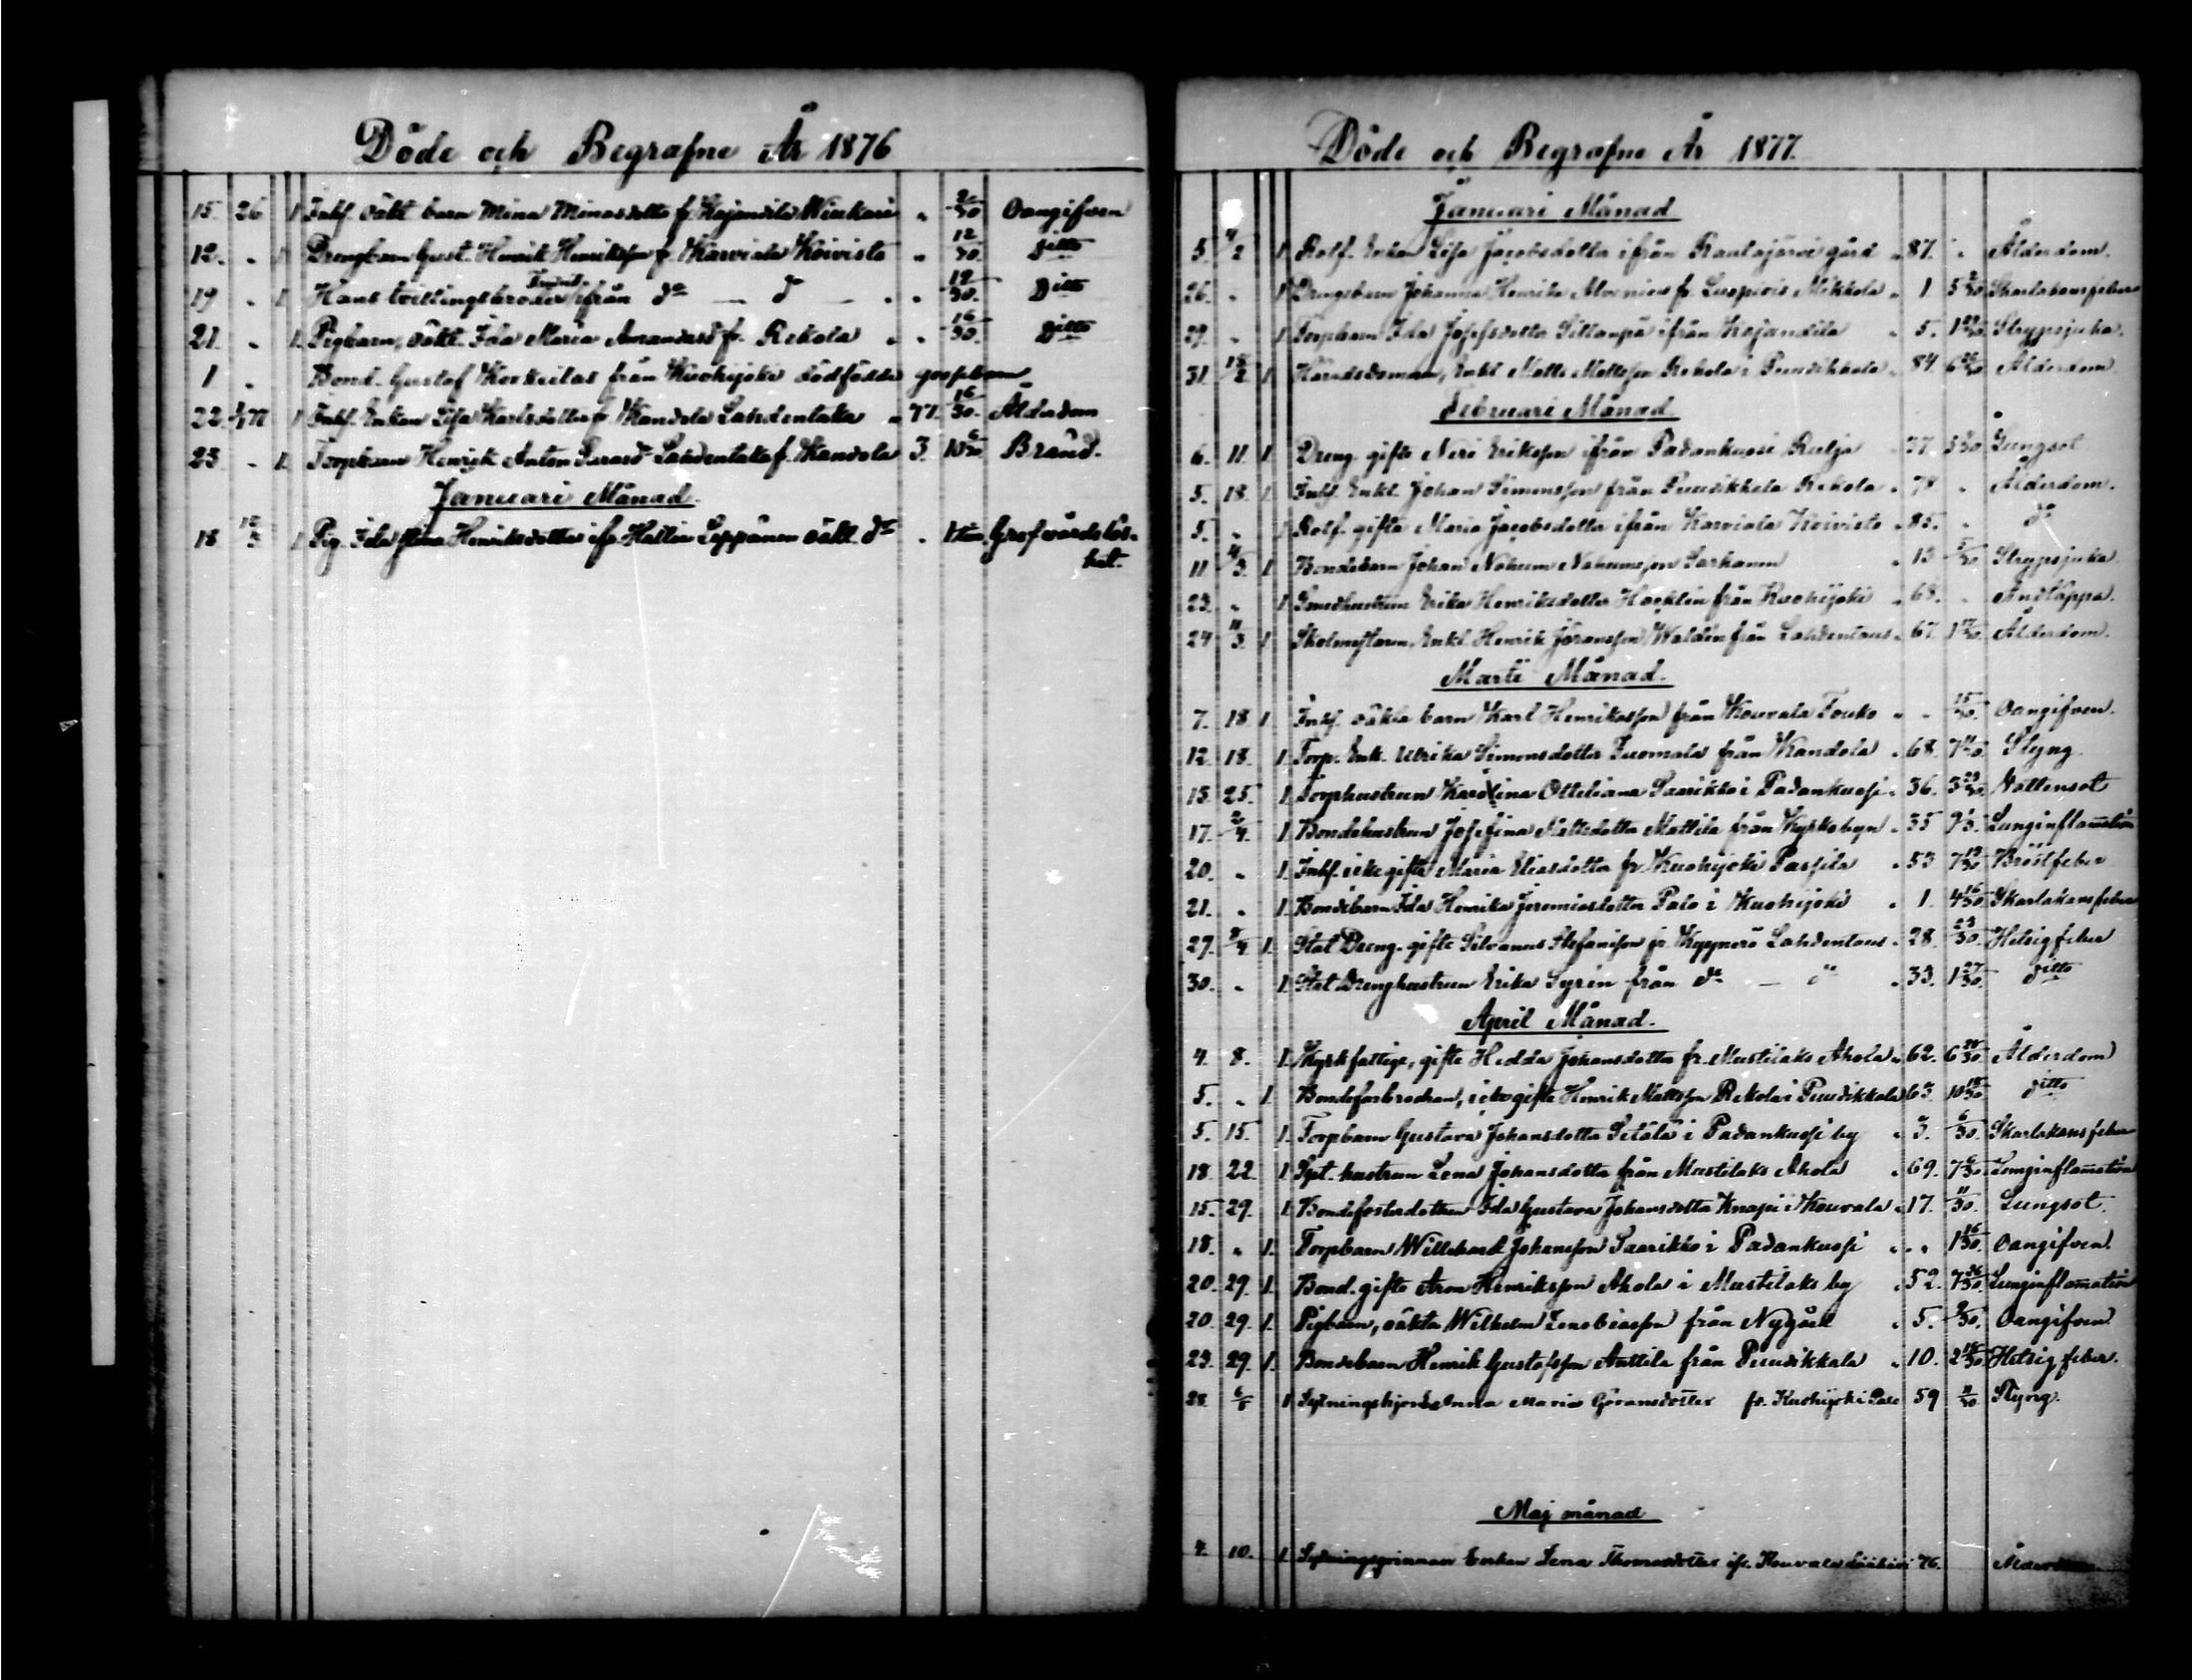 Döde och Begrafne År 1876
15. 26 1 Inhs. oäkt barn Mina Minasdotter fr. Kajandila Winkari " 2/30 Oangifven
12. " 1 Drengbarn Gust. Henrik Henriksson fr. Karviala Koivisto " 12/30. Ditto
19 " 1 Hans tvillingsbroder ifrån do — d — " " 19/30. Ditto
21. " 1. Pigbarn, oäkt. Ida Maria Amandasd fr. Rekola " " 16/30. Ditto
1 " Bond. Gustaf från Kuohijoki dödfödde gossebarn
22. 1/1 77 1 Inhs. Enkan Lisa Karlsdotter fr. Kandola Lahdentaka " 77. 16/30. Ålderdom
23 " 1. Torpbarn Henrik Anton Lahdentaka f. Kandola 3. 10 6/30 Bränd.
Januari Månad.
18 1 Pig. Ida Stina Henriksdotter ifr. Hallia Leppänen oäkt. dr . 1 tim. Graf vårdslös-
het.
Döde och Begrafne År 1877.
Januari Månad
5. 4/2 1 Rotf. Enkan Lisa Jacobsdotter ifrån Rautajärvi gård " 87. " Ålderdom.
26. " 1 Drengbarn Johanna Henrika fr. Luopiois Mikkola " 1 5 Skarlakansfeber
29. " 1 Torpbarn Ida Josefsdotter Sillanpä ifrån Kajandila " 5. 1 Strypsjuka.
31. 18/2 1 Häradsdomaren, Enkl. Matts Mattsson Rekola i Puudikkala " 84 6 Ålderdom.
Februari Månad.
6. 11. 1 Dreng. gifte Nero Eriksson ifrån Padankuosi Rulja 37. Lungsot
5. 18. 1 Inhs. Enkl. Johan Simonsson från Puudikkala Rekola " 78 " Ålderdom.
5. " 1 Rotf. gifta Maria Jacobsdotter ifrån Karviala Koivisto " 85. " do
11 4/3. 1 Bondebarn Johan Nahum Nahumsson Sarkanen " 13 5/30 Strypsjuka.
23. " 1 Smedhustrun Erika Henriksdotter från Kuohijoki " 68. " Andtäppa.
24 11/3. 1 Skolmästaren, Enkl. Henrik Göransson Waldén från Lahdentaus " 67. 1 17/30 Ålderdom.
Marti Månad.
7. 18 1 Inhs. oäkta barn Karl Henriksson från Kouvala Touko " " 15/30. Oangifven.
12. 18. 1 Torp. Enk. Ulrika Simonsdotter Tuomala från Kandola " 68. 7 Styng.
13. 25. 1 Torphustrun Karolina Otteliana Saarikko i Padankuosi " 36. 3 29/30 Vattensot
17. 2/4. 1 Bondehustrun Josefina Mattsdotter Mattila från Kyrkobyn " 35 9 1/3. Lunginflamation
20. " 1 Inhs. icke gifta Maria Eliasdotter fr. Kuohijoki Passila " 53 7 12/30 Bröstfeber
21. " 1. Bondebarn Ida Henrika Jeremiasdotter Palo i Kuohijoki " 1. 4 16/30 Skarlakansfeber
27. 8/4 1. Stat. Dreng. gifte Silvanus Stefansson fr. Kyynärö Lahdentaus " 28. 23/30. Hetsig feber
30. " 1 Stat Drenghustrun Erika Syrén från do — " " 33. 1 27/30. ditto
April Månad.
4. 8. 1 Kyrkfattige, gifta Hedda Johansdotter fr. Mustilaks Ahola " 62. 6 28/30 Ålderdom
5. " 1. Bondefarbrodren, icke gifte Henrik Mattsson Rekola i Puudikkala 63. 10 18/30 ditto
5. 15. 1. Torpbarn Gustava Johansdotter Setälä i Padankuosi by " 3. 6/30. Skarlakans feber
18 22. 1 Spt. hustrun Lena Johansdotter från Mustilaks Ahola " 69. 7 6/30 Lunginflamation
15. 29. 1 Bondefosterdottern Ida Gustava Johansdotter Knapi i Kouvala " 17. 11/30. Lungsot.
18. " 1. Torpbarn Willehard Johansson Saarikko i Padankuosi " " 1 16/30. Oangifven.
20. 29. 1. Bond. gifte Aron Henriksson Ahola i Mustilaks by " 52. 7 26/30. Lunginflamation
20. 29. 1. Pigbarn, oäkta Wilhelm Zenobiasson från Nygård " 5. 9/30. Oangifven
23. 29. 1. Bondebarn Henrik Gustafsson Anttila från Puudikkala " 10. 2 16/30 Hetsig feber.
28. 6/5 1 Sytningshjon Anna Maria Göransdotter fr. Kuohijoki Palo 59 11/30 Styng.
Maj månad
4. 10. 1 Sytningsqvinnan Enkan Lena Thomasdotter ifr. Kouvala 76. Ålderdom